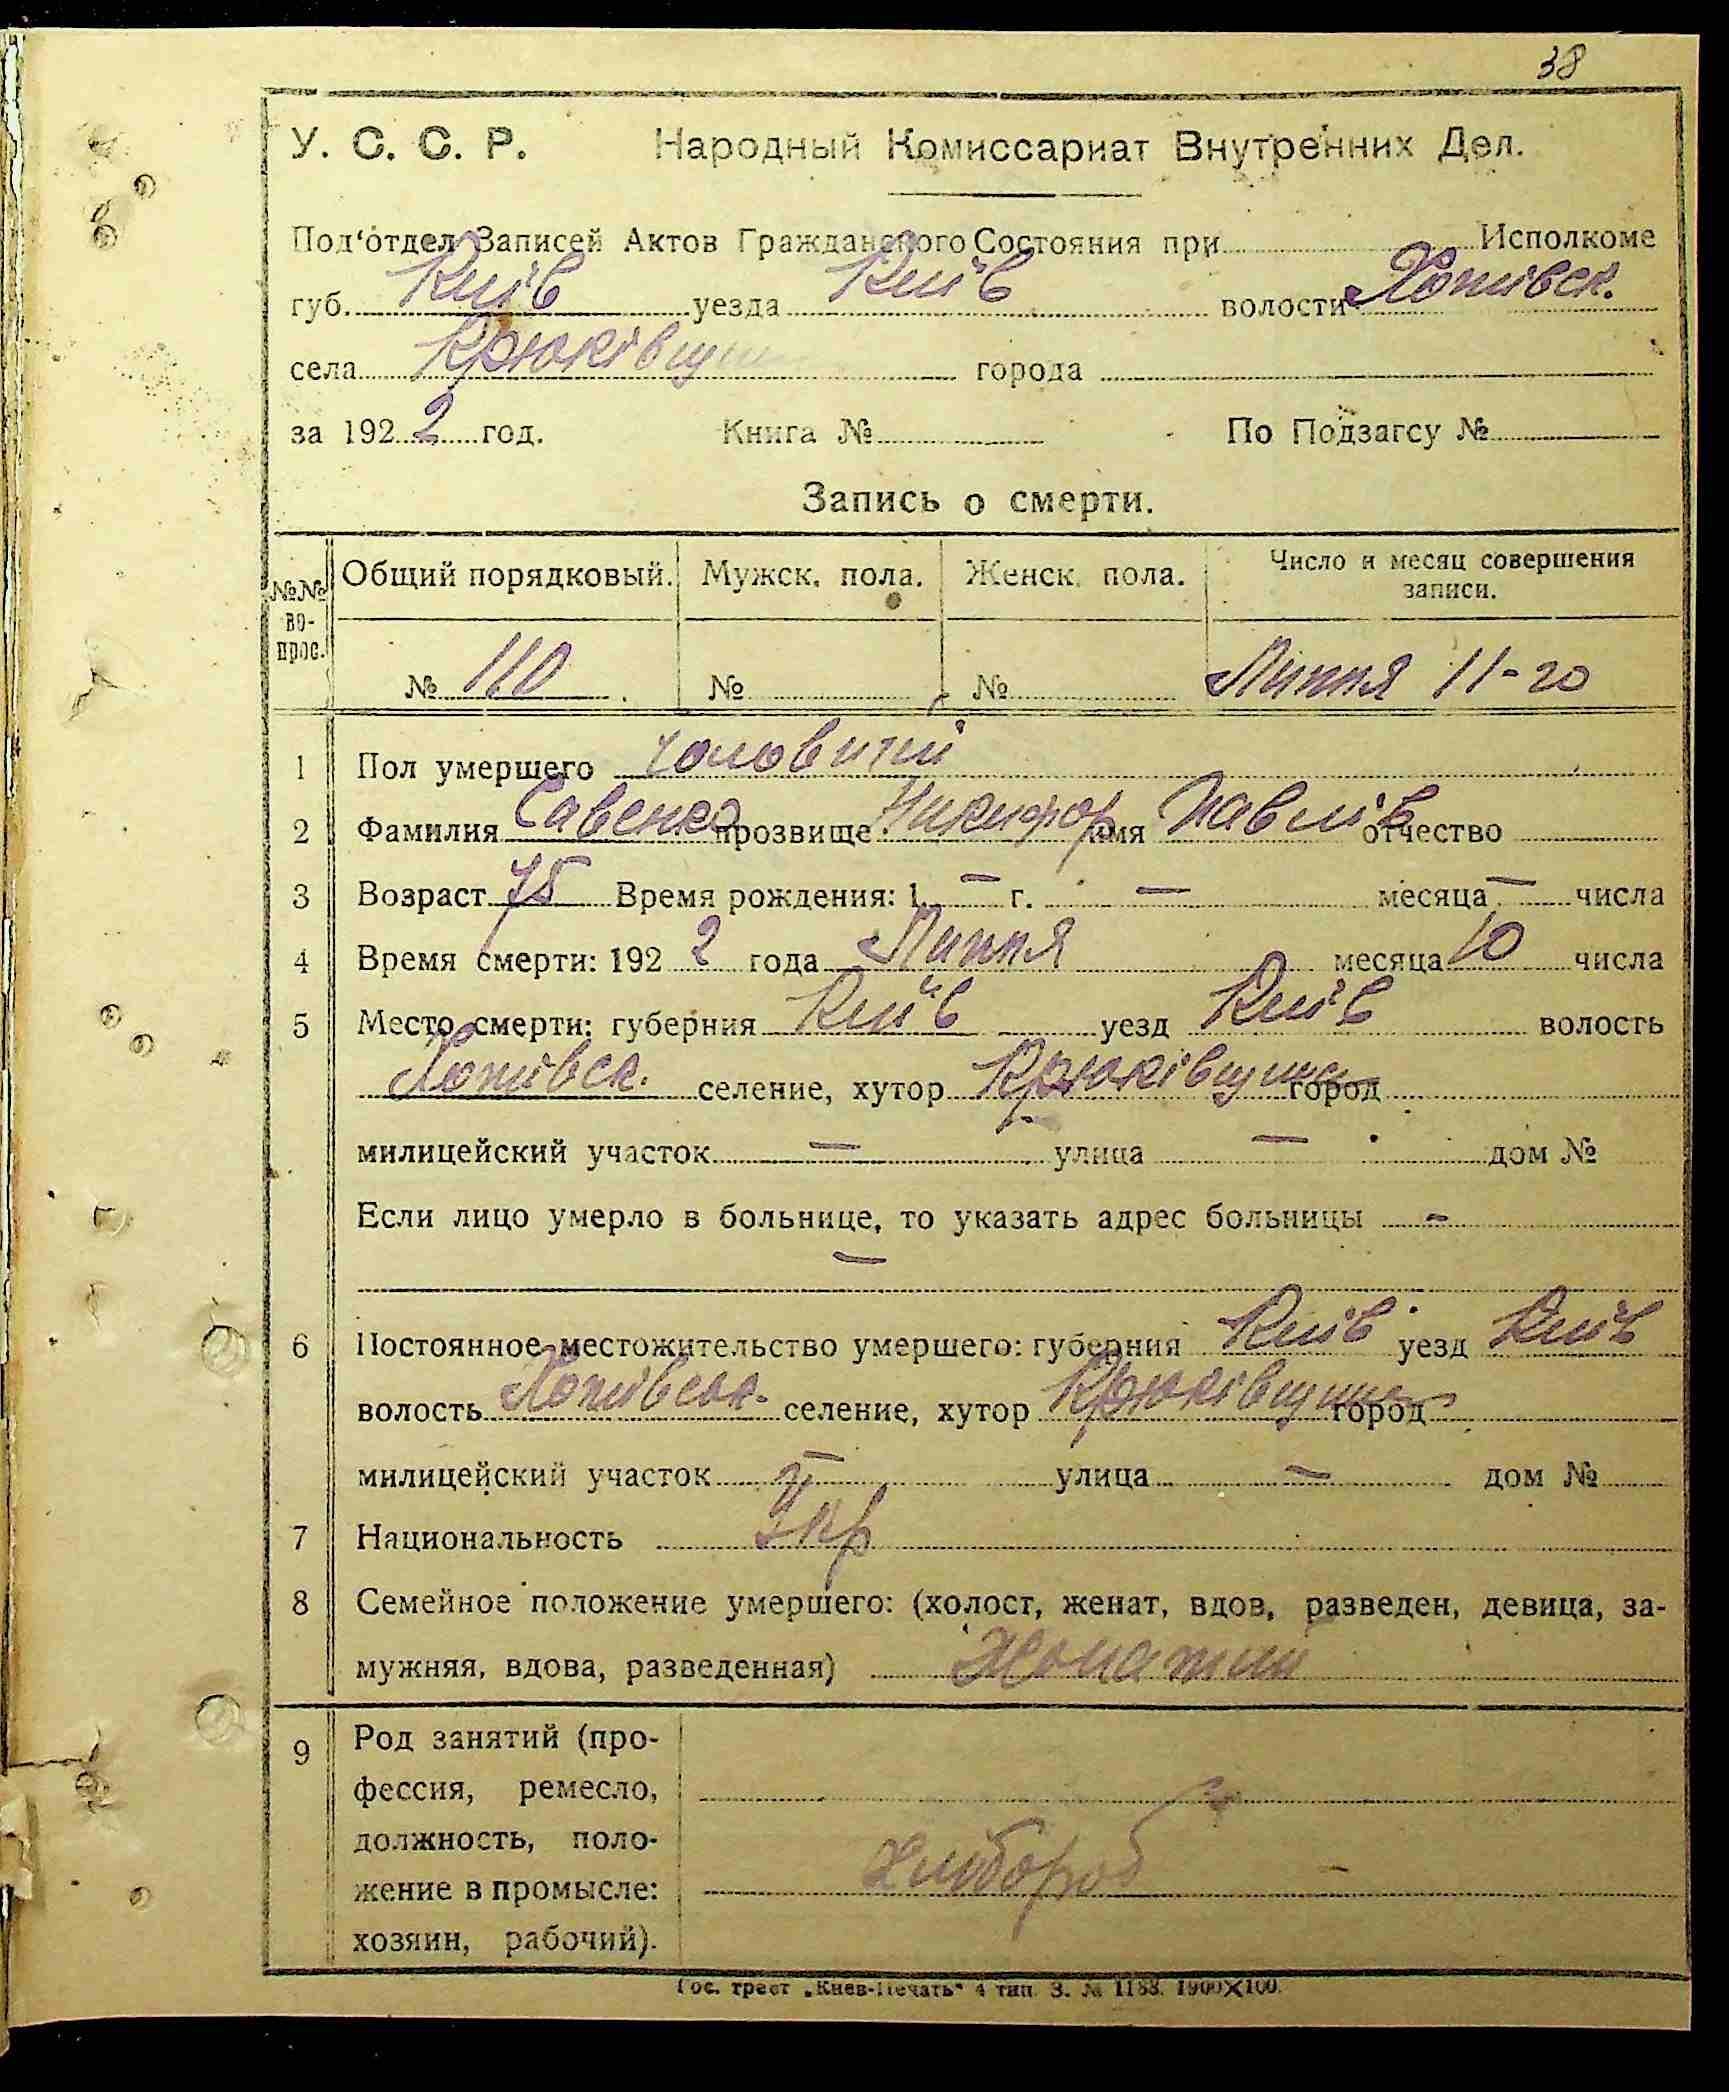 38
У. С. С. Р. Народный Комиссариат Внутренних Дел.
Под'отдел Записей Актов Гражданского Состояния при Исполкоме
губ. Київ уезда Київ волости Хотівск.
села Крюківщин города
за 1922 год. Книга № По Подзагсу №
Запись о смерти.
№№ во-прос. Общий порядковый. Мужск. пола. Женск. пола. Число и месяц совершения записи.
№ 110 № № Липня 11-20
1 Пол умершего чоловичий
2 Фамилия Савенко прозвище Никифор имя Павлів отчество
3 Возраст 75 Время рождения: 1 — г. — месяца — числа
4 Время смерти: 1922 года Липня месяца 10 числа
5 Место смерти: губерния Київ уезд Київ волость
Хотівск. селение, хутор Крюківщина город
милицейский участок — улица — дом №
Если лицо умерло в больнице, то указать адрес больницы -
—
6 Постоянное местожительство умершего: губерния Київ уезд Київ
волость Хотівськ. селение, хутор Крюківщина город
милицейский участок — улица — дом №
7 Национальность Укр
8 Семейное положение умершего: (холост, женат, вдов, разведен, девица, за-
мужняя, вдова, разведенная) Жонатий
9 Род занятий (про-
фессия, ремесло,
должность, поло-
жение в промысле: Хлібороб
хозяин, рабочий).
Гос. трест „Киев-Печать“ 4 тип. З. № 1188. 1900×100.